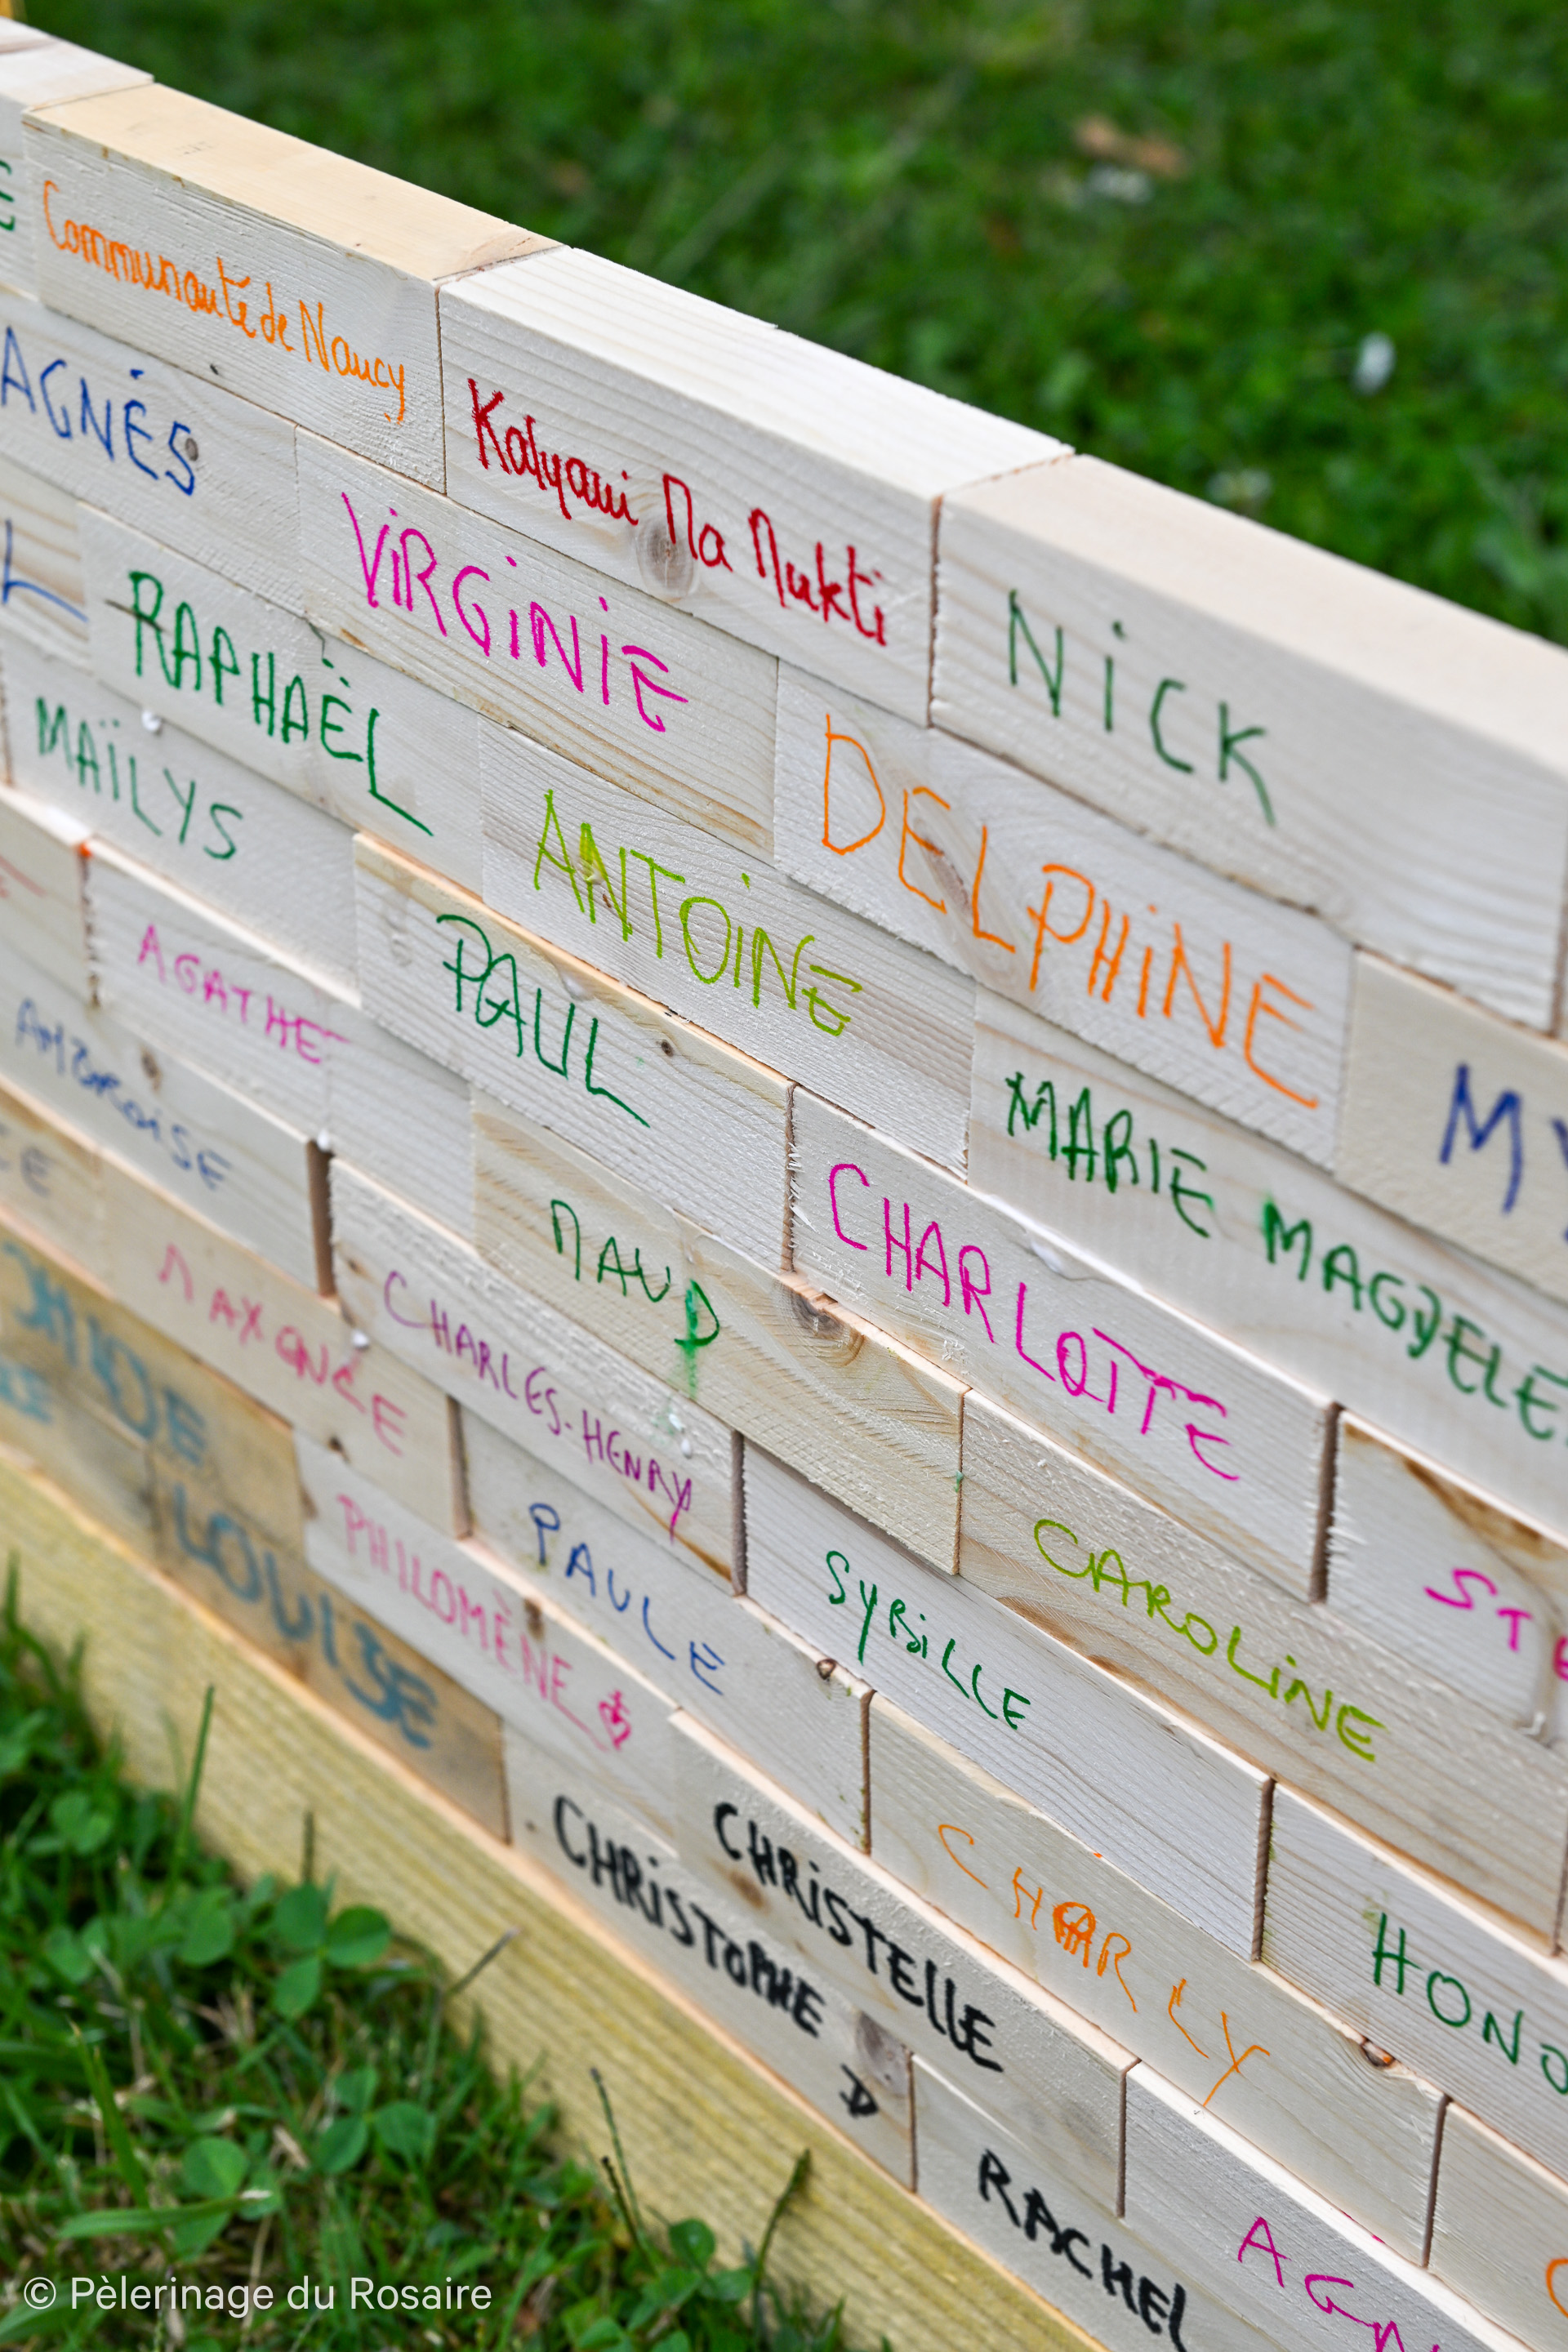 Communauté de Nancy
Kalyani Ma Mukti
NiCK
AGNÈS
ViRGiNiE
DELPHiNE
RAPHAËL
ANTOiNE
MARIE MAGDELE
MAÏLYS
PAUL
CHARLOTTE
AGATHE
MAUD
CAROLiNE
AMBROiSE
CHARLES-HENRY
SYBiLLE
HONO
MAXENCE
PAULE
CHARLY
PHILOMÈNE
CHRiSTELLE
AGN
LOUISE
CHRiSTOPHE D
RACHEL
© Pèlerinage du Rosaire